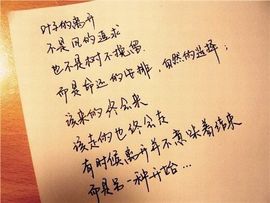 叶子的离开
不是风的追求
也不是树不挽留
而是命运的安排，自然的选择；
该来的终会来
该走的也终会走
有时候离开并不意味着结束
而是另一种开始...